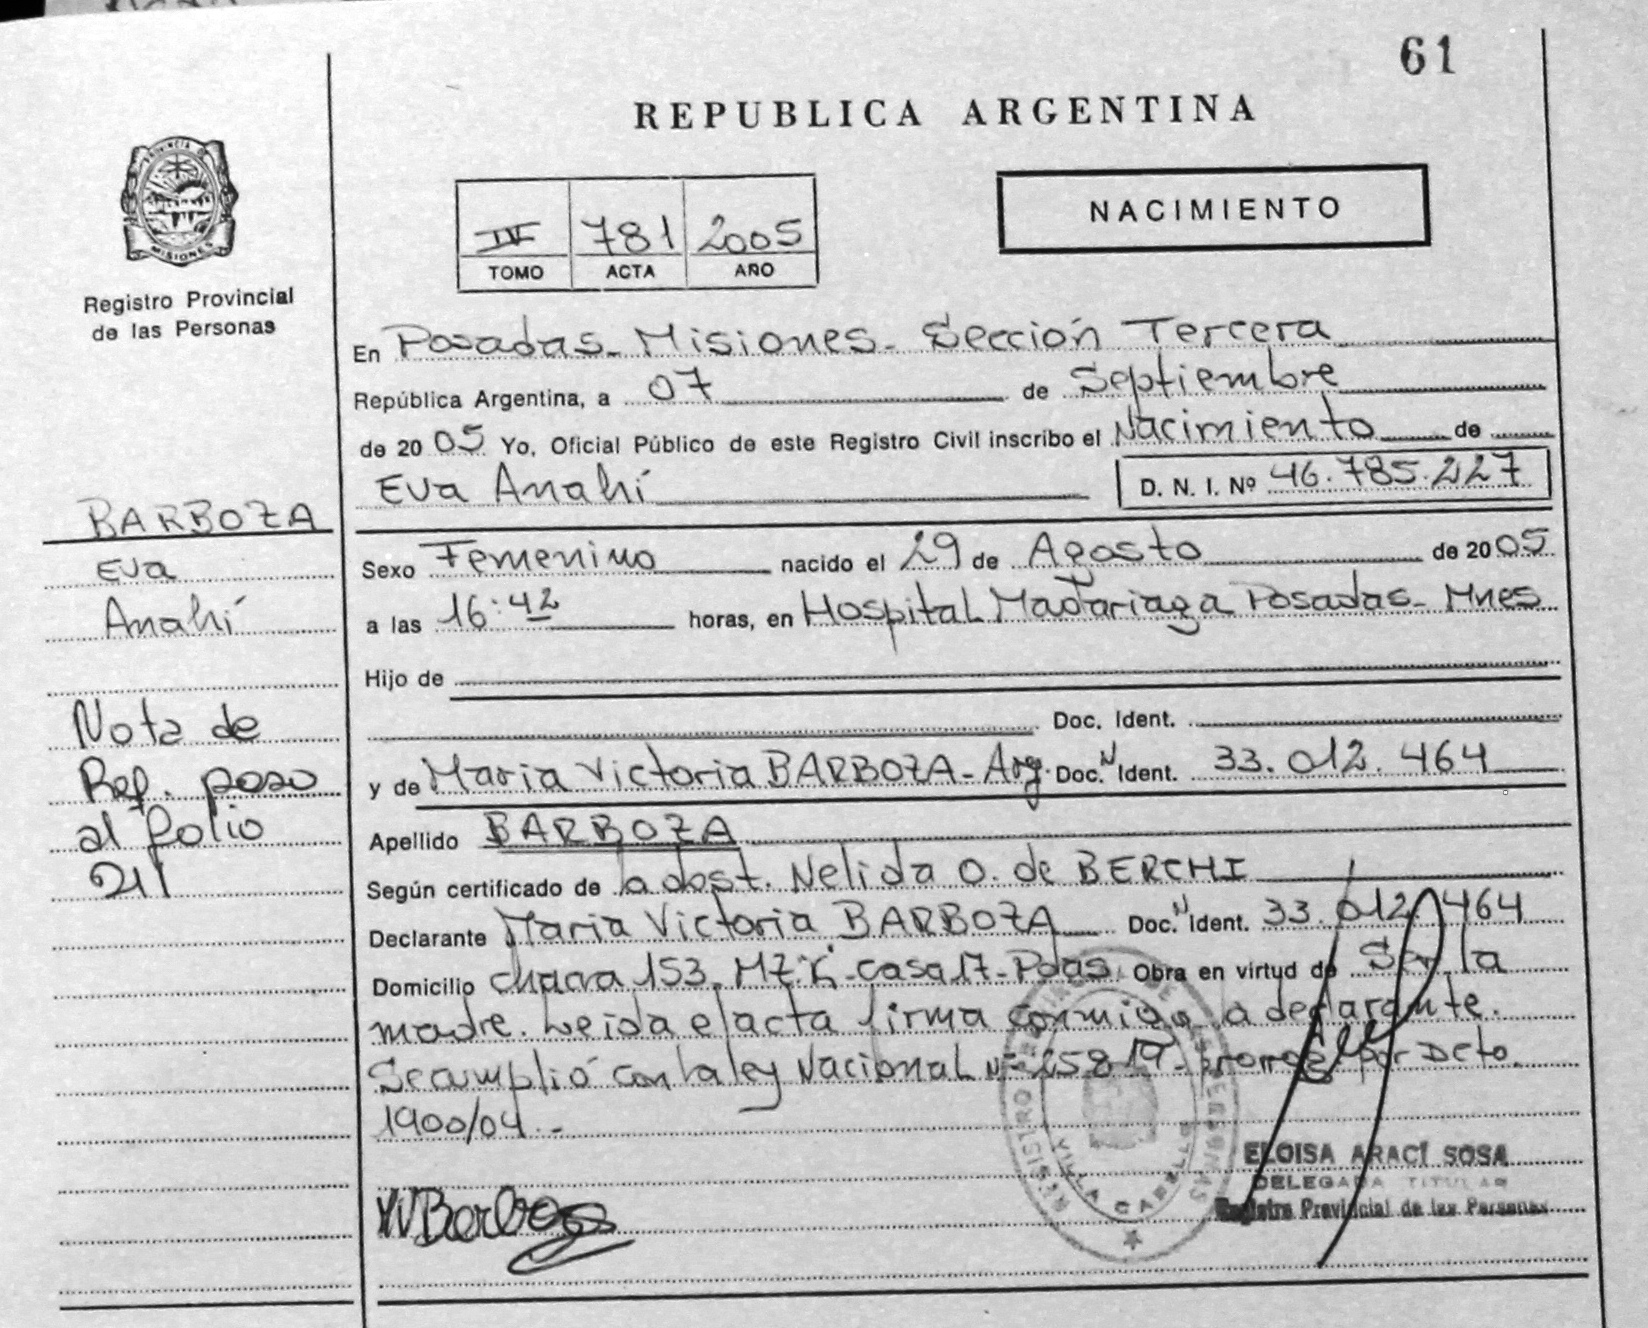 61
REPUBLICA ARGENTINA
PROVINCIA DE
MISIONES
Registro Provincial
de las Personas
IV 781 2005
TOMO ACTA AÑO
NACIMIENTO
En Posadas - Misiones - Sección Tercera
República Argentina, a 07 de Septiembre
de 2005 Yo, Oficial Público de este Registro Civil inscribo el Nacimiento de
Eva Anahí D. N. I. Nº 46.785.227
BARBOZA
Eva
Anahí
Sexo Femenino nacido el 29 de Agosto de 2005
a las 16:42 horas, en Hospital Madariaga Posadas - Mnes
Hijo de
Doc. Ident.
y de Maria Victoria BARBOZA - Arg. Doc. N Ident. 33.012.464
Apellido BARBOZA
Según certificado de la obst. Nelida O. de BERCHI
Declarante Maria Victoria BARBOZA Doc. N Ident. 33.012.464
Domicilio chacra 153, MZ. casa 17 - Pdas. Obra en virtud de Ser la
madre. Leida el acta firma conmigo la declarante.
Se cumplió con la ley Nacional Nº 25819 - prorrog por Dcto.
1900/04.-
Nota de
Ref. paso
al folio
211
MVBarboza
REGISTRO PROVINCIAL DE LAS PERSONAS
VILLA CABELLO
ELOISA ARACÍ SOSA
DELEGADA TITULAR
Registro Provincial de las Personas